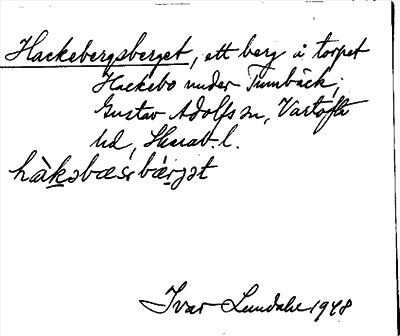 Hackebergsberget, ett berg å torpet
Hackebo under Tumbäck,
Gustav Adolfs sn, Vartofta
hd, Skarab. l.
hàkəbæsbærjət
Ivar Lundahl 1948